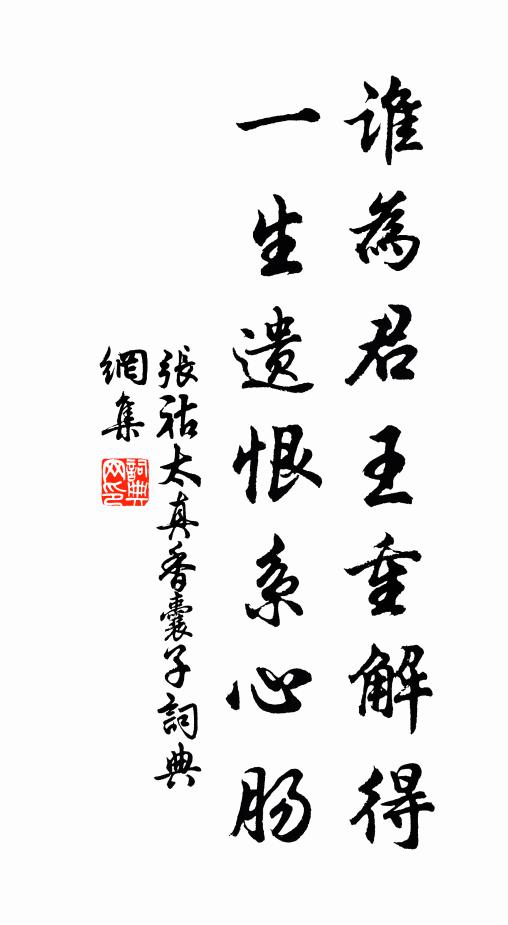 誰為君王重解得
一生遗恨系心肠
張祜太真香囊子詞典
網集
詞典網印